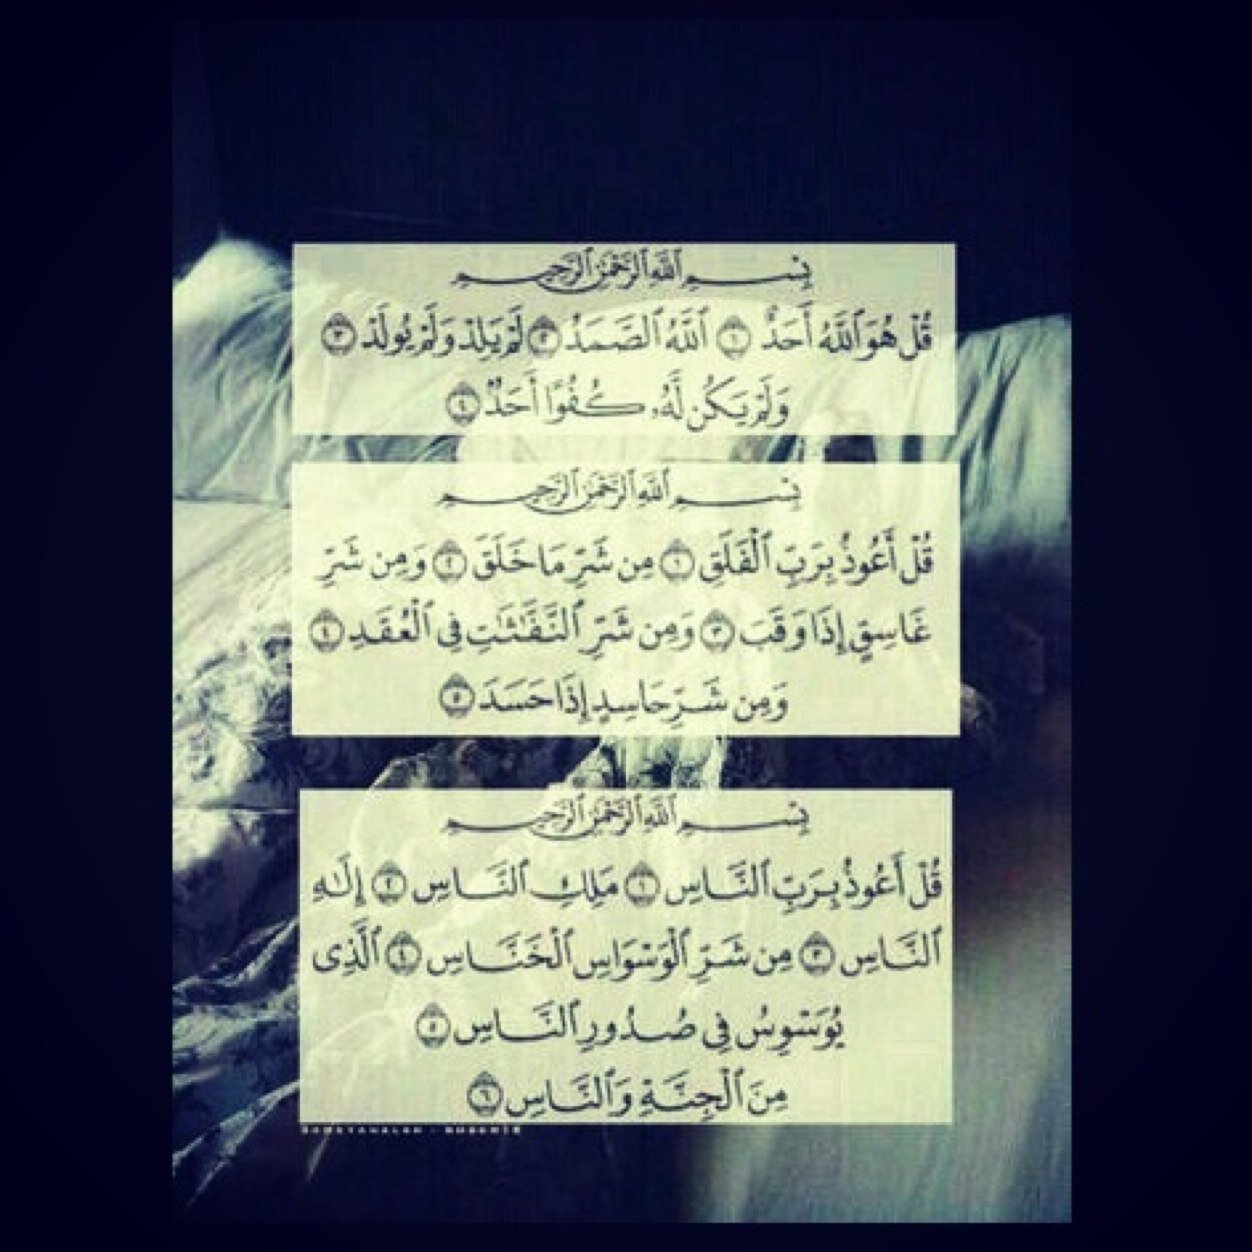 بِسْمِ ٱللَّهِ ٱلرَّحْمَٰنِ ٱلرَّحِيمِ
قُلْ هُوَ ٱللَّهُ أَحَدٌ ١ ٱللَّهُ ٱلصَّمَدُ ٢ لَمْ يَلِدْ وَلَمْ يُولَدْ ٣
وَلَمْ يَكُن لَّهُۥ كُفُوًا أَحَدٌۢ ٤
بِسْمِ ٱللَّهِ ٱلرَّحْمَٰنِ ٱلرَّحِيمِ
قُلْ أَعُوذُ بِرَبِّ ٱلْفَلَقِ ١ مِن شَرِّ مَا خَلَقَ ٢ وَمِن شَرِّ
غَاسِقٍ إِذَا وَقَبَ ٣ وَمِن شَرِّ ٱلنَّفَّٰثَٰتِ فِى ٱلْعُقَدِ ٤
وَمِن شَرِّ حَاسِدٍ إِذَا حَسَدَ ٥
بِسْمِ ٱللَّهِ ٱلرَّحْمَٰنِ ٱلرَّحِيمِ
قُلْ أَعُوذُ بِرَبِّ ٱلنَّاسِ ١ مَلِكِ ٱلنَّاسِ ٢ إِلَٰهِ
ٱلنَّاسِ ٣ مِن شَرِّ ٱلْوَسْوَاسِ ٱلْخَنَّاسِ ٤ ٱلَّذِى
يُوَسْوِسُ فِى صُدُورِ ٱلنَّاسِ ٥
مِنَ ٱلْجِنَّةِ وَٱلنَّاسِ ٦